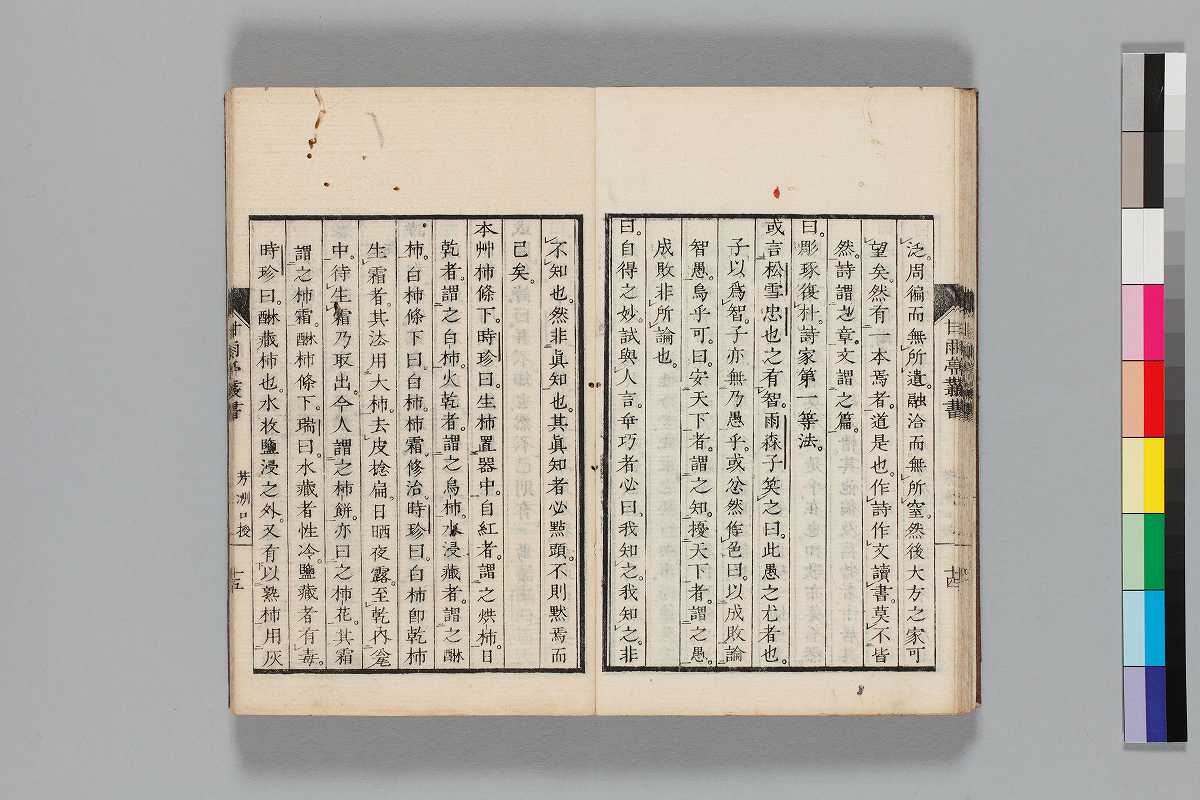 泛周徧而無所遺。融洽而無所窒。然後大方之家可
望矣。然有一本焉者。道是也。作詩作文讀書。莫不皆
然。詩謂之章。文謂之篇。
曰。彫琢復朴。詩家第一等法。
或言松雪忠也之有智。雨森子笑之曰。此愚之尤者也。
子以爲智。子亦無乃愚乎。或忿然作色曰。以成敗論
智愚。烏乎可。曰。安天下者。謂之知。擾天下者。謂之愚。
成敗非所論也。
曰。自得之妙。試與人言。乖巧者必曰。我知之。我知之。非
甘雨亭叢書
十四
不知也。然非眞知也。其眞知者必㸃頭。不則默焉而
已矣。
本艸柿條下。時珍曰。生柿置器中。自紅者。謂之烘柿。日
乾者。謂之白柿。火乾者。謂之烏柿。水浸藏者。謂之醂
柿。白柿條下曰。白柿。柿霜。修治。時珍曰。白柿卽乾柿
生霜者。其法用大柿。去皮捻扁。日晒夜露。至乾。內瓮
中。待生霜乃取出。今人謂之柿餅。亦曰之柿花。其霜
謂之柿霜。醂柿條下。瑞曰。水藏者性冷。鹽藏者有毒。
時珍曰。醂藏柿也。水收鹽浸之外。又有以熟柿用灰
甘雨亭叢書
芳洲口授
十五